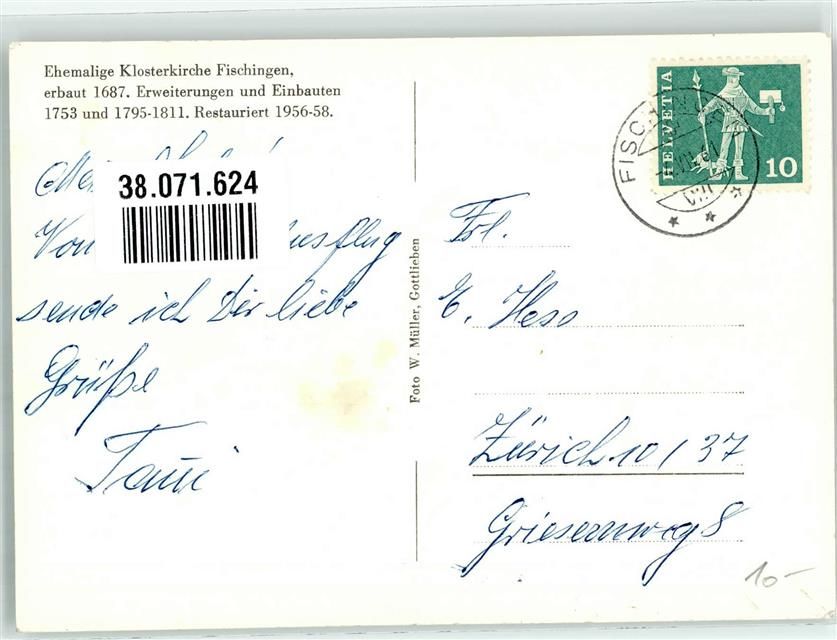 Ehemalige Klosterkirche Fischingen,
erbaut 1687. Erweiterungen und Einbauten
1753 und 1795-1811. Restauriert 1956-58.
38.071.624
sende ich Dir liebe
Grüße
Foto W. Müller, Gottlieben
HELVETIA
10
Frl.
E. Hess
Zürich 10/37
Griesernweg 8
10-